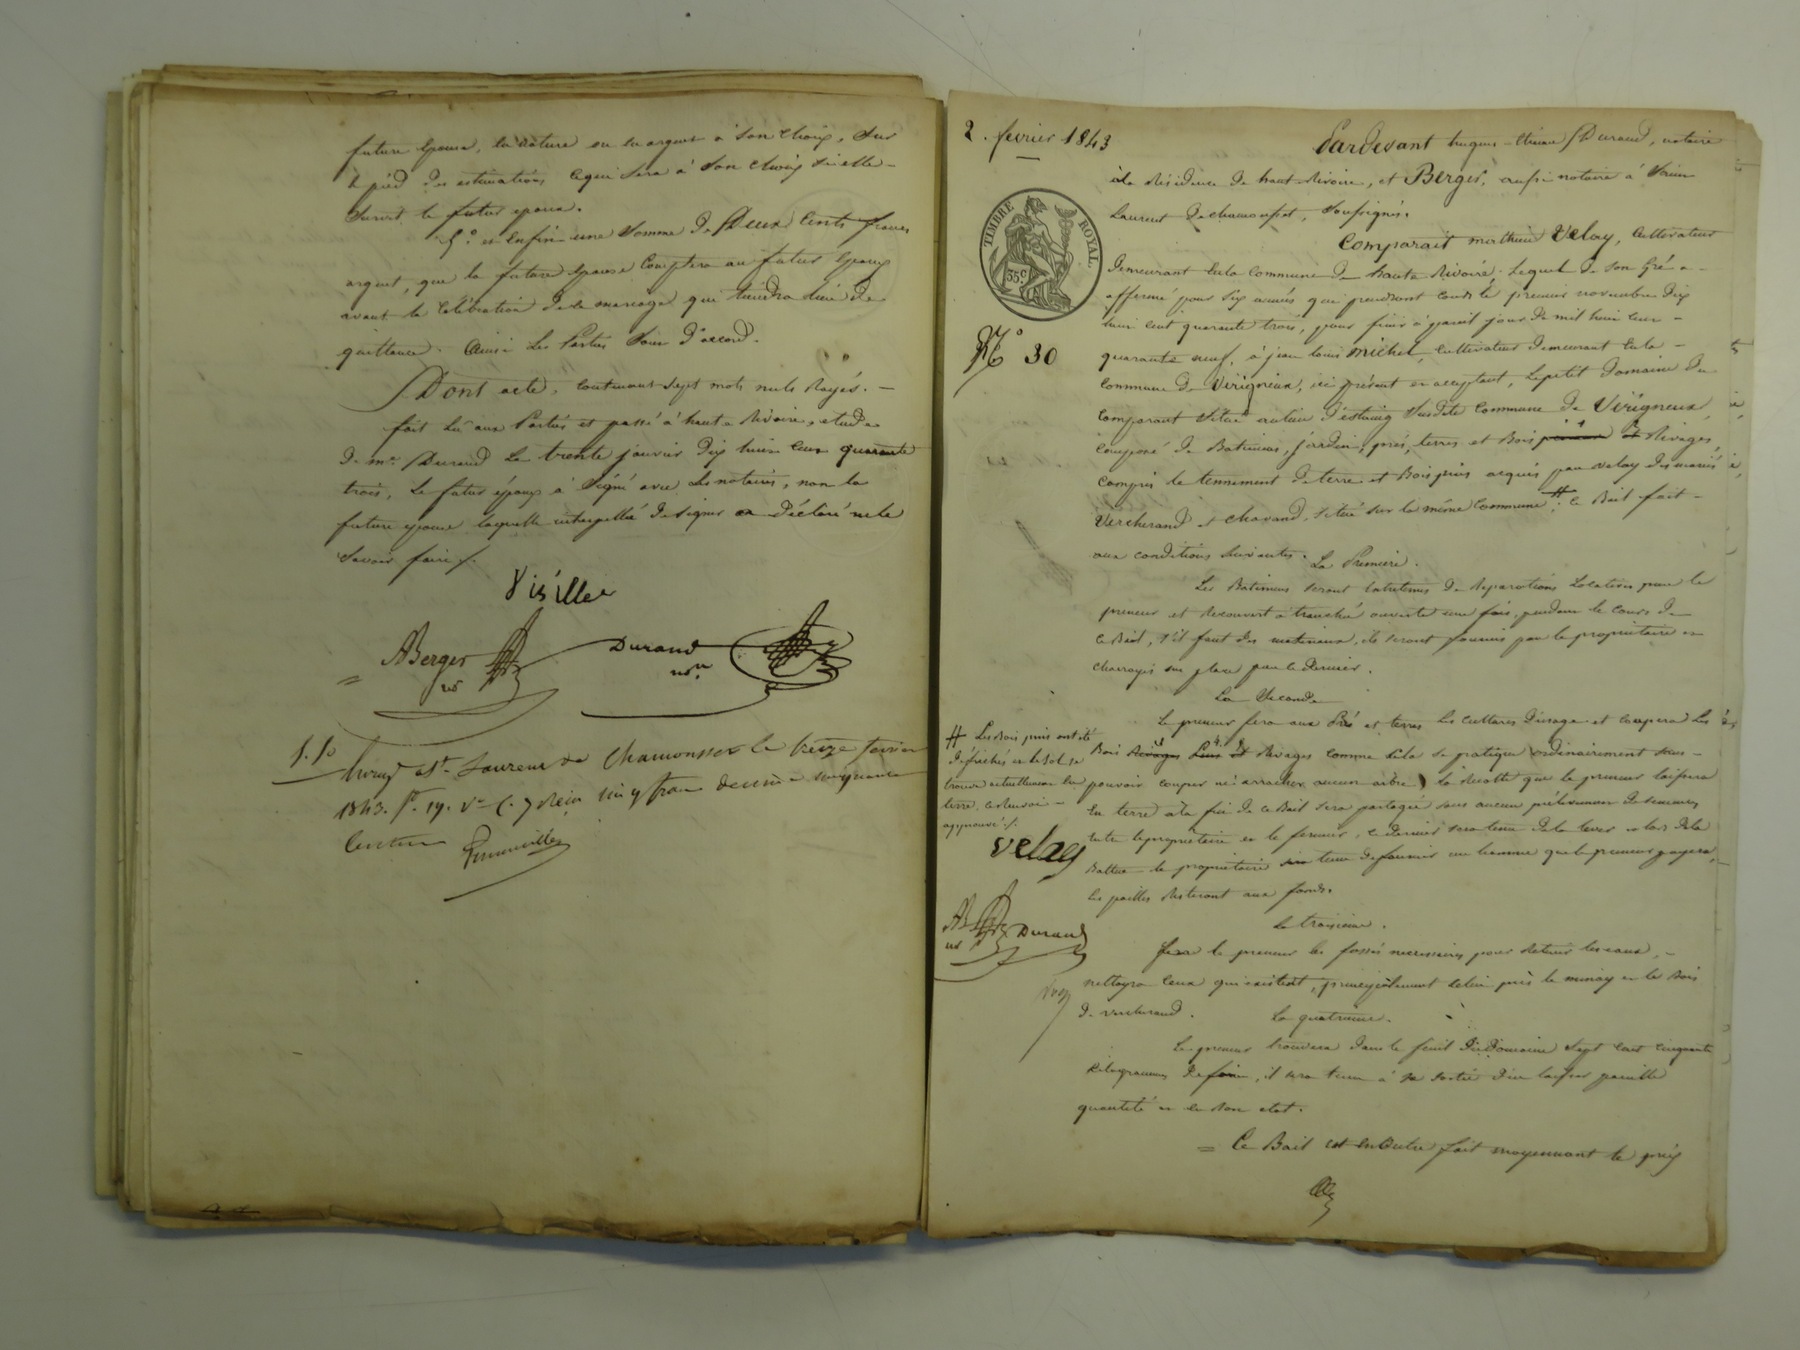 future épouse, en nature ou en argent à son choix, sur
le pied des estimations ce qui sera à son choix si elle
survit le futur époux.
5.° et enfin une somme de Deux Cents francs
argent, que la future épouse comptera au futur époux
avant la célébration de ce mariage qui tiendra lieu de
quittance. Ainsi les Parties sont d'accord.
Dont acte, contenant sept mots nuls Rayés.
fait lu aux Parties et passé à haute Rivoire, etude
de me. Durand le trente janvier dix huit cent quarante
trois, le futur époux a signé avec les notaires, non la
future épouse laquelle interpellée de signer a déclaré ne le
savoir faire /.
Visille
ABerger
nre
Durand
nre.
Enregé à St. Laurent de Chamousset le treize fevrier
1843. fo. 19. Vo C. 7 Reçu cinq francs decime cinquante
Centimes
2. fevrier 1843
Pardevant hugues-Durand, notaire
à la Résidence de haute Rivoire, et Berger, aussi notaire à Saint
Laurent de chamousset, soussignés.
TIMBRE ROYAL.
35c
Comparait mathieu Velay, Cultivateur
demeurant en la commune de haute Rivoire. Lequel de son gré a
affermé pour six années qui prendront cours le premier novembre dix
huit cent quarante trois, pour finir à pareil jour de mil huit cent
No 30
quarante neuf, à jean louis michel, cultivateur demeurant en la
commune de Virigneux, ici présent et acceptant, le petit Domaine du
comparant situé au lieu d'estaing susdite Commune de Virigneux,
composé de Batimens, jardin, prés, terres et Bois et Rivages,
compris le tennement de terre et Bois pins acquis par velay des mariés
Vercherand et chavand, situé sur la même Commune #. ce Bail fait
aux conditions suivantes. La Premiere.
Les Batimens seront entretenus de Reparations Locatives par le
preneur et Recouvert à tranchée ouverte une fois, pendant le cours de
ce Bail, s'il faut des materiaux, ils seront fournis par le proprietaire et
charroyés sur place par le dernier.
La Seconde
Le preneur fera aux Prés et terres les cultures d'usage et coupera les
Bois et Rivages comme cela se pratique ordinairement sans
pouvoir couper ni arracher aucun arbre, la Recolte que le preneur laissera
en terre à la fin de ce Bail sera partagée sans aucun prélevement de semences
entre le proprietaire et le fermier, ce dernier sera tenu de la lever et lors de la
Battue le proprietaire sera tenu de fournir un homme que le preneur payera,
les pailles resteront aux fonds.
# Les Bois pins ont été
défrichés et le sol se
trouve actuellement en
terre, ce Renvoi
approuvé ./.
velay
AB
nre
Durand
La troisieme.
fera le preneur les fossés necessaires pour Retenir les eaux,
nettoyra ceux qui existent, principalement celui près le minay et le Bois
de vercherand. La quatrieme.
Le preneur trouvera dans le fenil du Domaine Sept cent cinquante
kilogrammes de foin, il sera tenu à sa sortie d'en laisser pareille
quantité et en Bon etat.
= Ce Bail est en outre fait moyennant le prix